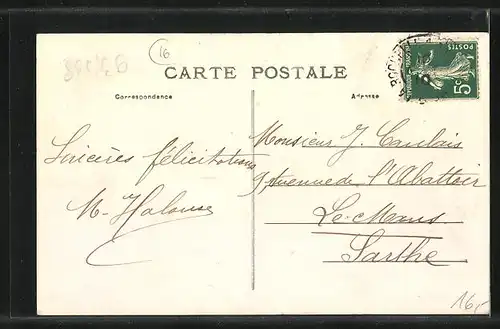 16
CARTE POSTALE
POSTES
5c
Correspondance
Adresse
Sincères félicitations
M. Halouse
Monsieur J.
9 Avenue de l'Abattoir
Le Mans
Sarthe
16,-